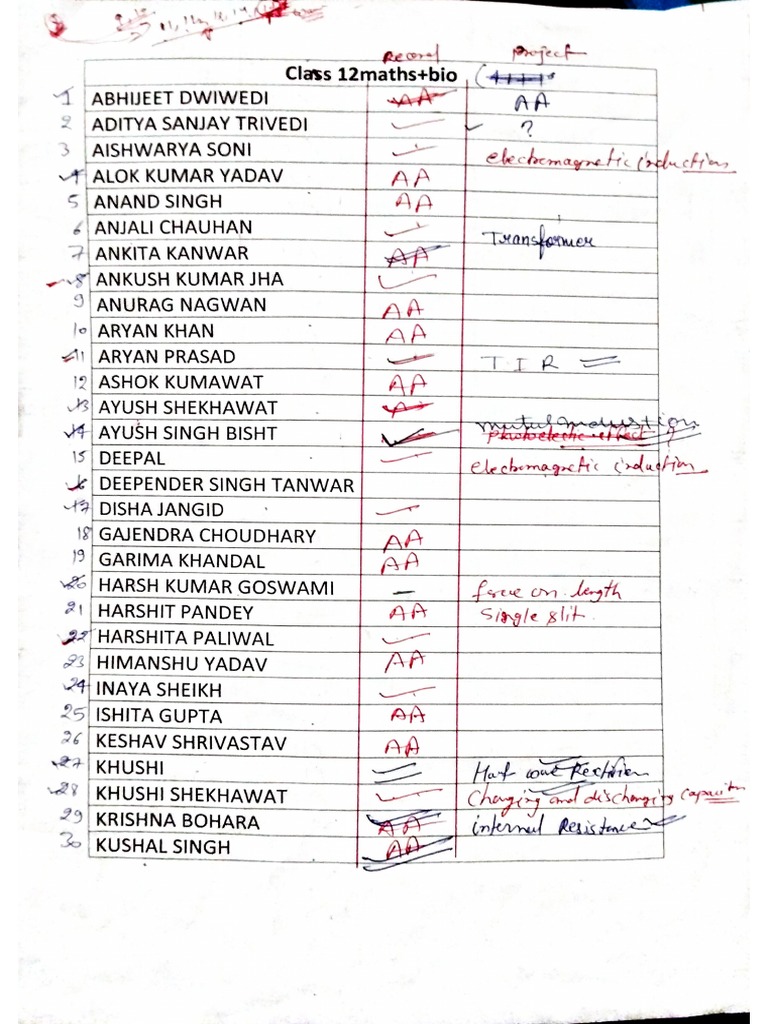 Record Project
Class 12maths+bio
1 ABHIJEET DWIWEDI AA AA
2 ADITYA SANJAY TRIVEDI ✓ ✓ ?
3 AISHWARYA SONI ✓ electromagnetic induction
4 ALOK KUMAR YADAV AA
5 ANAND SINGH AA
6 ANJALI CHAUHAN ✓ Transformer
7 ANKITA KANWAR AA
8 ANKUSH KUMAR JHA ✓
9 ANURAG NAGWAN AA
10 ARYAN KHAN AA
11 ARYAN PRASAD ✓ TIR
12 ASHOK KUMAWAT AA
13 AYUSH SHEKHAWAT
14 AYUSH SINGH BISHT ✓ photoelectic effect
15 DEEPAL ✓ electromagnetic induction
16 DEEPENDER SINGH TANWAR
17 DISHA JANGID ✓
18 GAJENDRA CHOUDHARY AA
19 GARIMA KHANDAL AA
20 HARSH KUMAR GOSWAMI – on length
21 HARSHIT PANDEY AA Single slit.
22 HARSHITA PALIWAL ✓
23 HIMANSHU YADAV AA
24 INAYA SHEIKH ✓
25 ISHITA GUPTA AA
26 KESHAV SHRIVASTAV AA
27 KHUSHI ✓ Half wave Rectifier
28 KHUSHI SHEKHAWAT ✓ Charging and discharging capacitor
29 KRISHNA BOHARA AA internal Resistance
30 KUSHAL SINGH AA